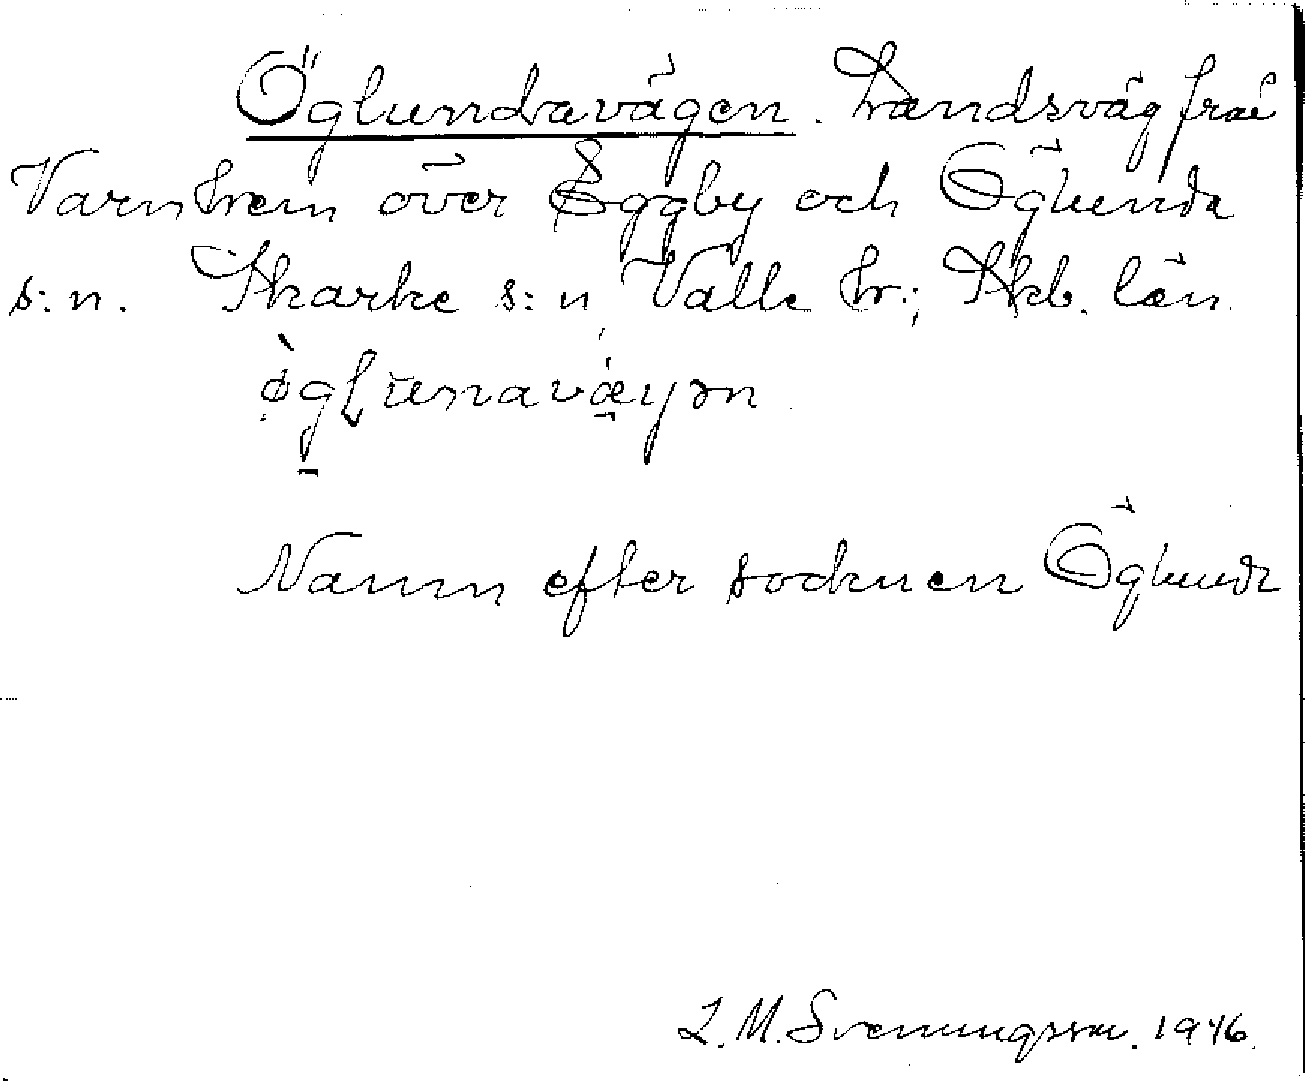 Öglundavägen. Landsväg från
Varnhem över Eggby och Öglunda
s:n. Skarke s:n, Valle hr; Skb. län.
Namn efter socknen Öglunda
L. M. Svenungsson. 1946.